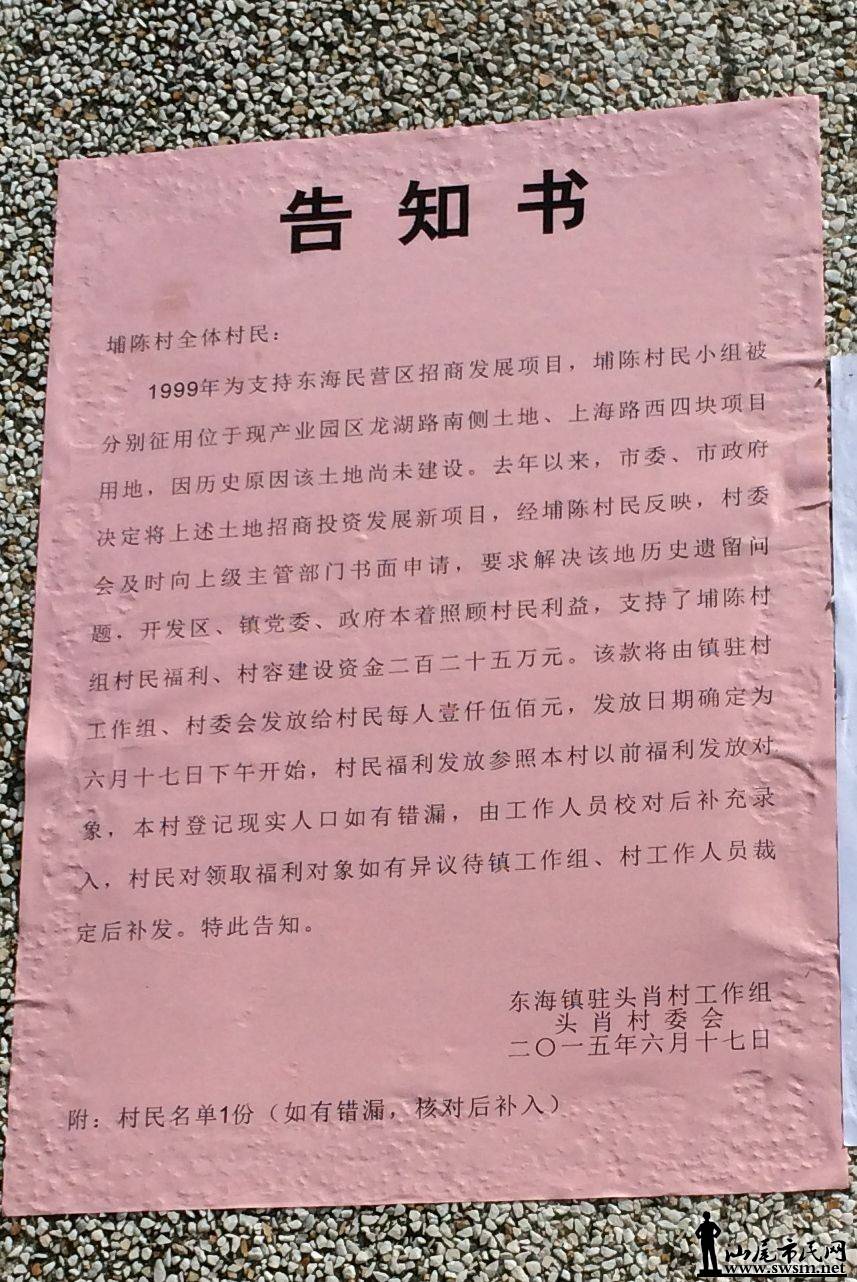 告知书
埔陈村全体村民：
1999年为支持东海民营区招商发展项目，埔陈村民小组被
分别征用位于现产业园区龙湖路南侧土地、上海路西四块项目
用地，因历史原因该土地尚未建设。去年以来，市委、市政府
决定将上述土地招商投资发展新项目，经埔陈村民反映，村委
会及时向上级主管部门书面申请，要求解决该地历史遗留问
题．开发区、镇党委、政府本着照顾村民利益，支持了埔陈村
组村民福利、村容建设资金二百二十五万元。该款将由镇驻村
工作组、村委会发放给村民每人壹仟伍佰元，发放日期确定为
六月十七日下午开始，村民福利发放参照本村以前福利发放对
象，本村登记现实人口如有错漏，由工作人员校对后补充录
入，村民对领取福利对象如有异议待镇工作组、村工作人员裁
定后补发。特此告知。
东海镇驻头肖村工作组
头肖村委会
二〇一五年六月十七日
附：村民名单1份（如有错漏，核对后补入）
汕尾市民网
www.swsm.net